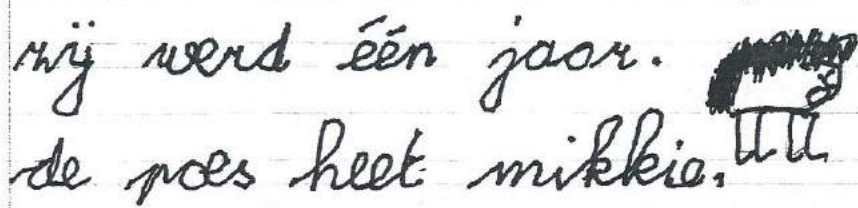 zij werd één jaar.
de poes heet mikkie.